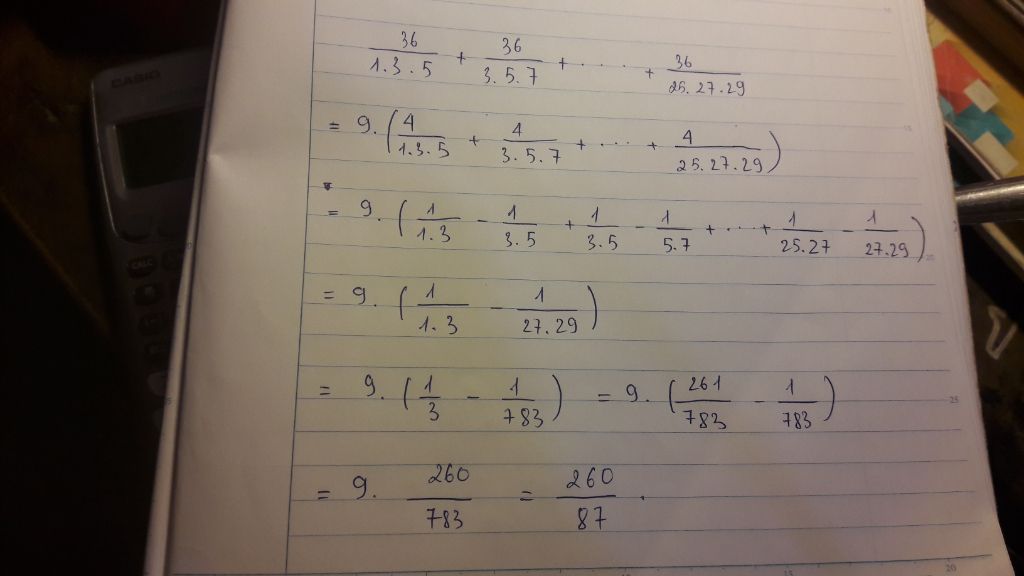 CASIO
36/1.3.5 + 36/3.5.7 + ..... + 36/25.27.29
= 9.(4/1.3.5 + 4/3.5.7 + .... + 4/25.27.29)
= 9.(1/1.3 - 1/3.5 + 1/3.5 - 1/5.7 + .... + 1/25.27 - 1/27.29)
= 9.(1/1.3 - 1/27.29)
= 9.(1/3 - 1/783) = 9.(261/783 - 1/783)
= 9. 260/783 = 260/87 .